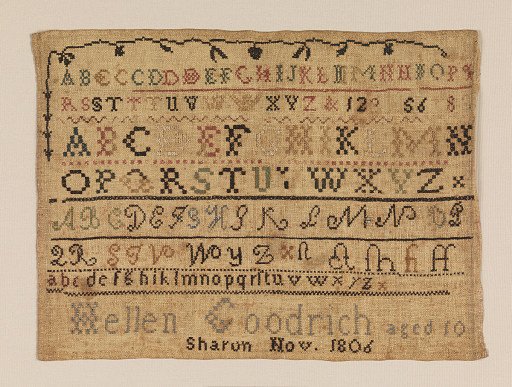 ABCCCDDDEFGHIJKLIIMNNOPQ
RSSTTTUVWWXVZ&12 56 8
ABCDEFGHIKLMN
OPQRSTUVWXYZ×
ABCDEFGHIKLMNOP
QRSTVWYZ
abcdefghiklmnopqrstuvwxyz
Hellen Goodrich aged 10
Sharon Nov. 1806